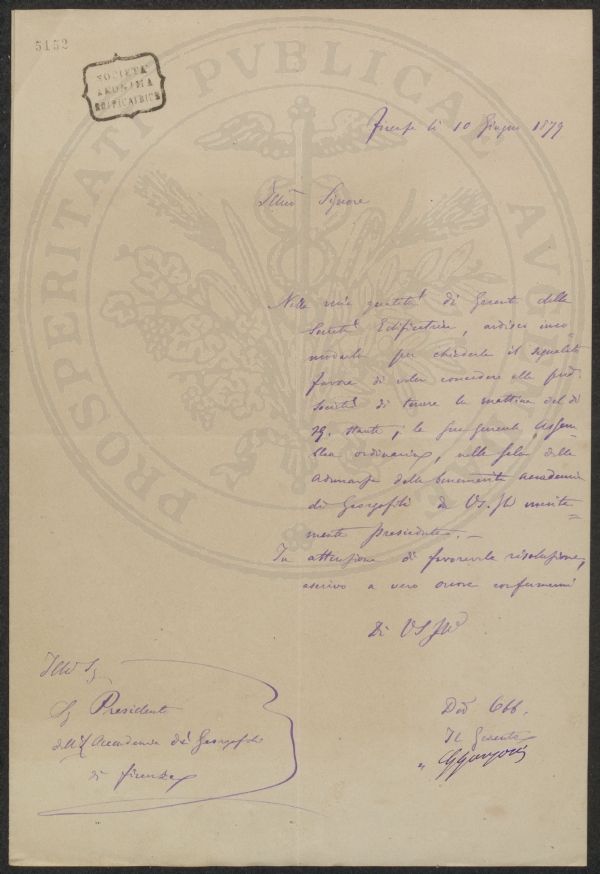 5152
SOCIETA'
ANONIMA
EDIFICATRICE
PROSPERITATI PVBLICAE AVGE
Firenze li 10 Giugno 1879
Illmo Signore
Nella mia qualità di Gerente della
Società Edificatrice, ardisco inco
modarla per chiederle il segnalato
favore di voler concedere alla pred.
Società di tenere la mattina del dì
29. stante, la sua generale Assem=
blea ordinaria, nella Sala delle
Adunanze della benemerita Accademia
dei Georgofili da VS. Illma merita=
mente presieduta. —
In attenzione di favorevole risoluzione,
ascrivo a vero onore confermarmi
Di VS Illma
Illmo Sig.
Sig Presidente
dell'I Accademia dei Georgofili
di Firenze
Dev Obb.
Il Gerente